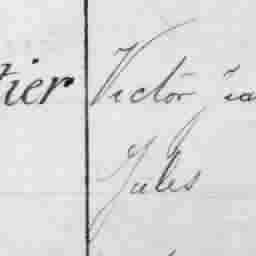 tier Victor Ja
Jules